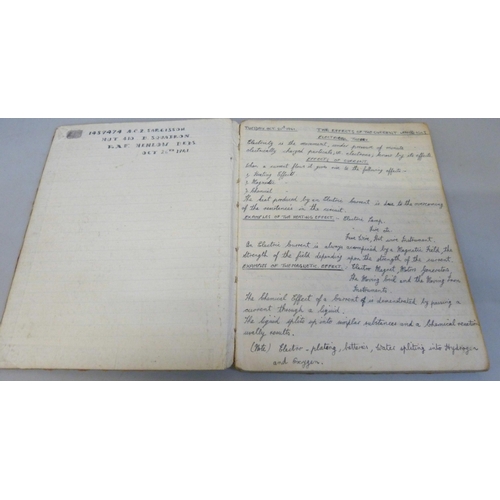 A.C.2
HUT
SQUADRON
R.A.F.
OCT
TUESDAY OCT. THE EFFECTS OF THE CURRENT
ELECTRON THEORY
Electricity is the movement, under pressure of minute
electrically charged particles, or electrons, known by its effects
EFFECTS OF CURRENT
When a current flows it gives rise to the following effects:-
Heating Effect
Magnetic
Chemical
The heat produced by an Electric Current is due to the overcoming
of the resistances in the circuit.
EXAMPLES OF THE HEATING EFFECT:- Electric Lamp.
Fire
Fuse Wire, Hot wire Instrument.
An Electric Current is always accompanied by a Magnetic Field, the
strength of the field depending upon the strength of the current.
EXAMPLES OF THE MAGNETIC EFFECT:- Electro Magnet, Motors, Generators,
the Moving Coil and the Moving Iron
Instruments.
The Chemical Effect of a Current is demonstrated by passing a
current through a liquid.
The liquid splits up into simpler substances and a Chemical reaction
usually results.
(Note) Electro-plating, batteries, Water splitting into Hydrogen
and Oxygen.